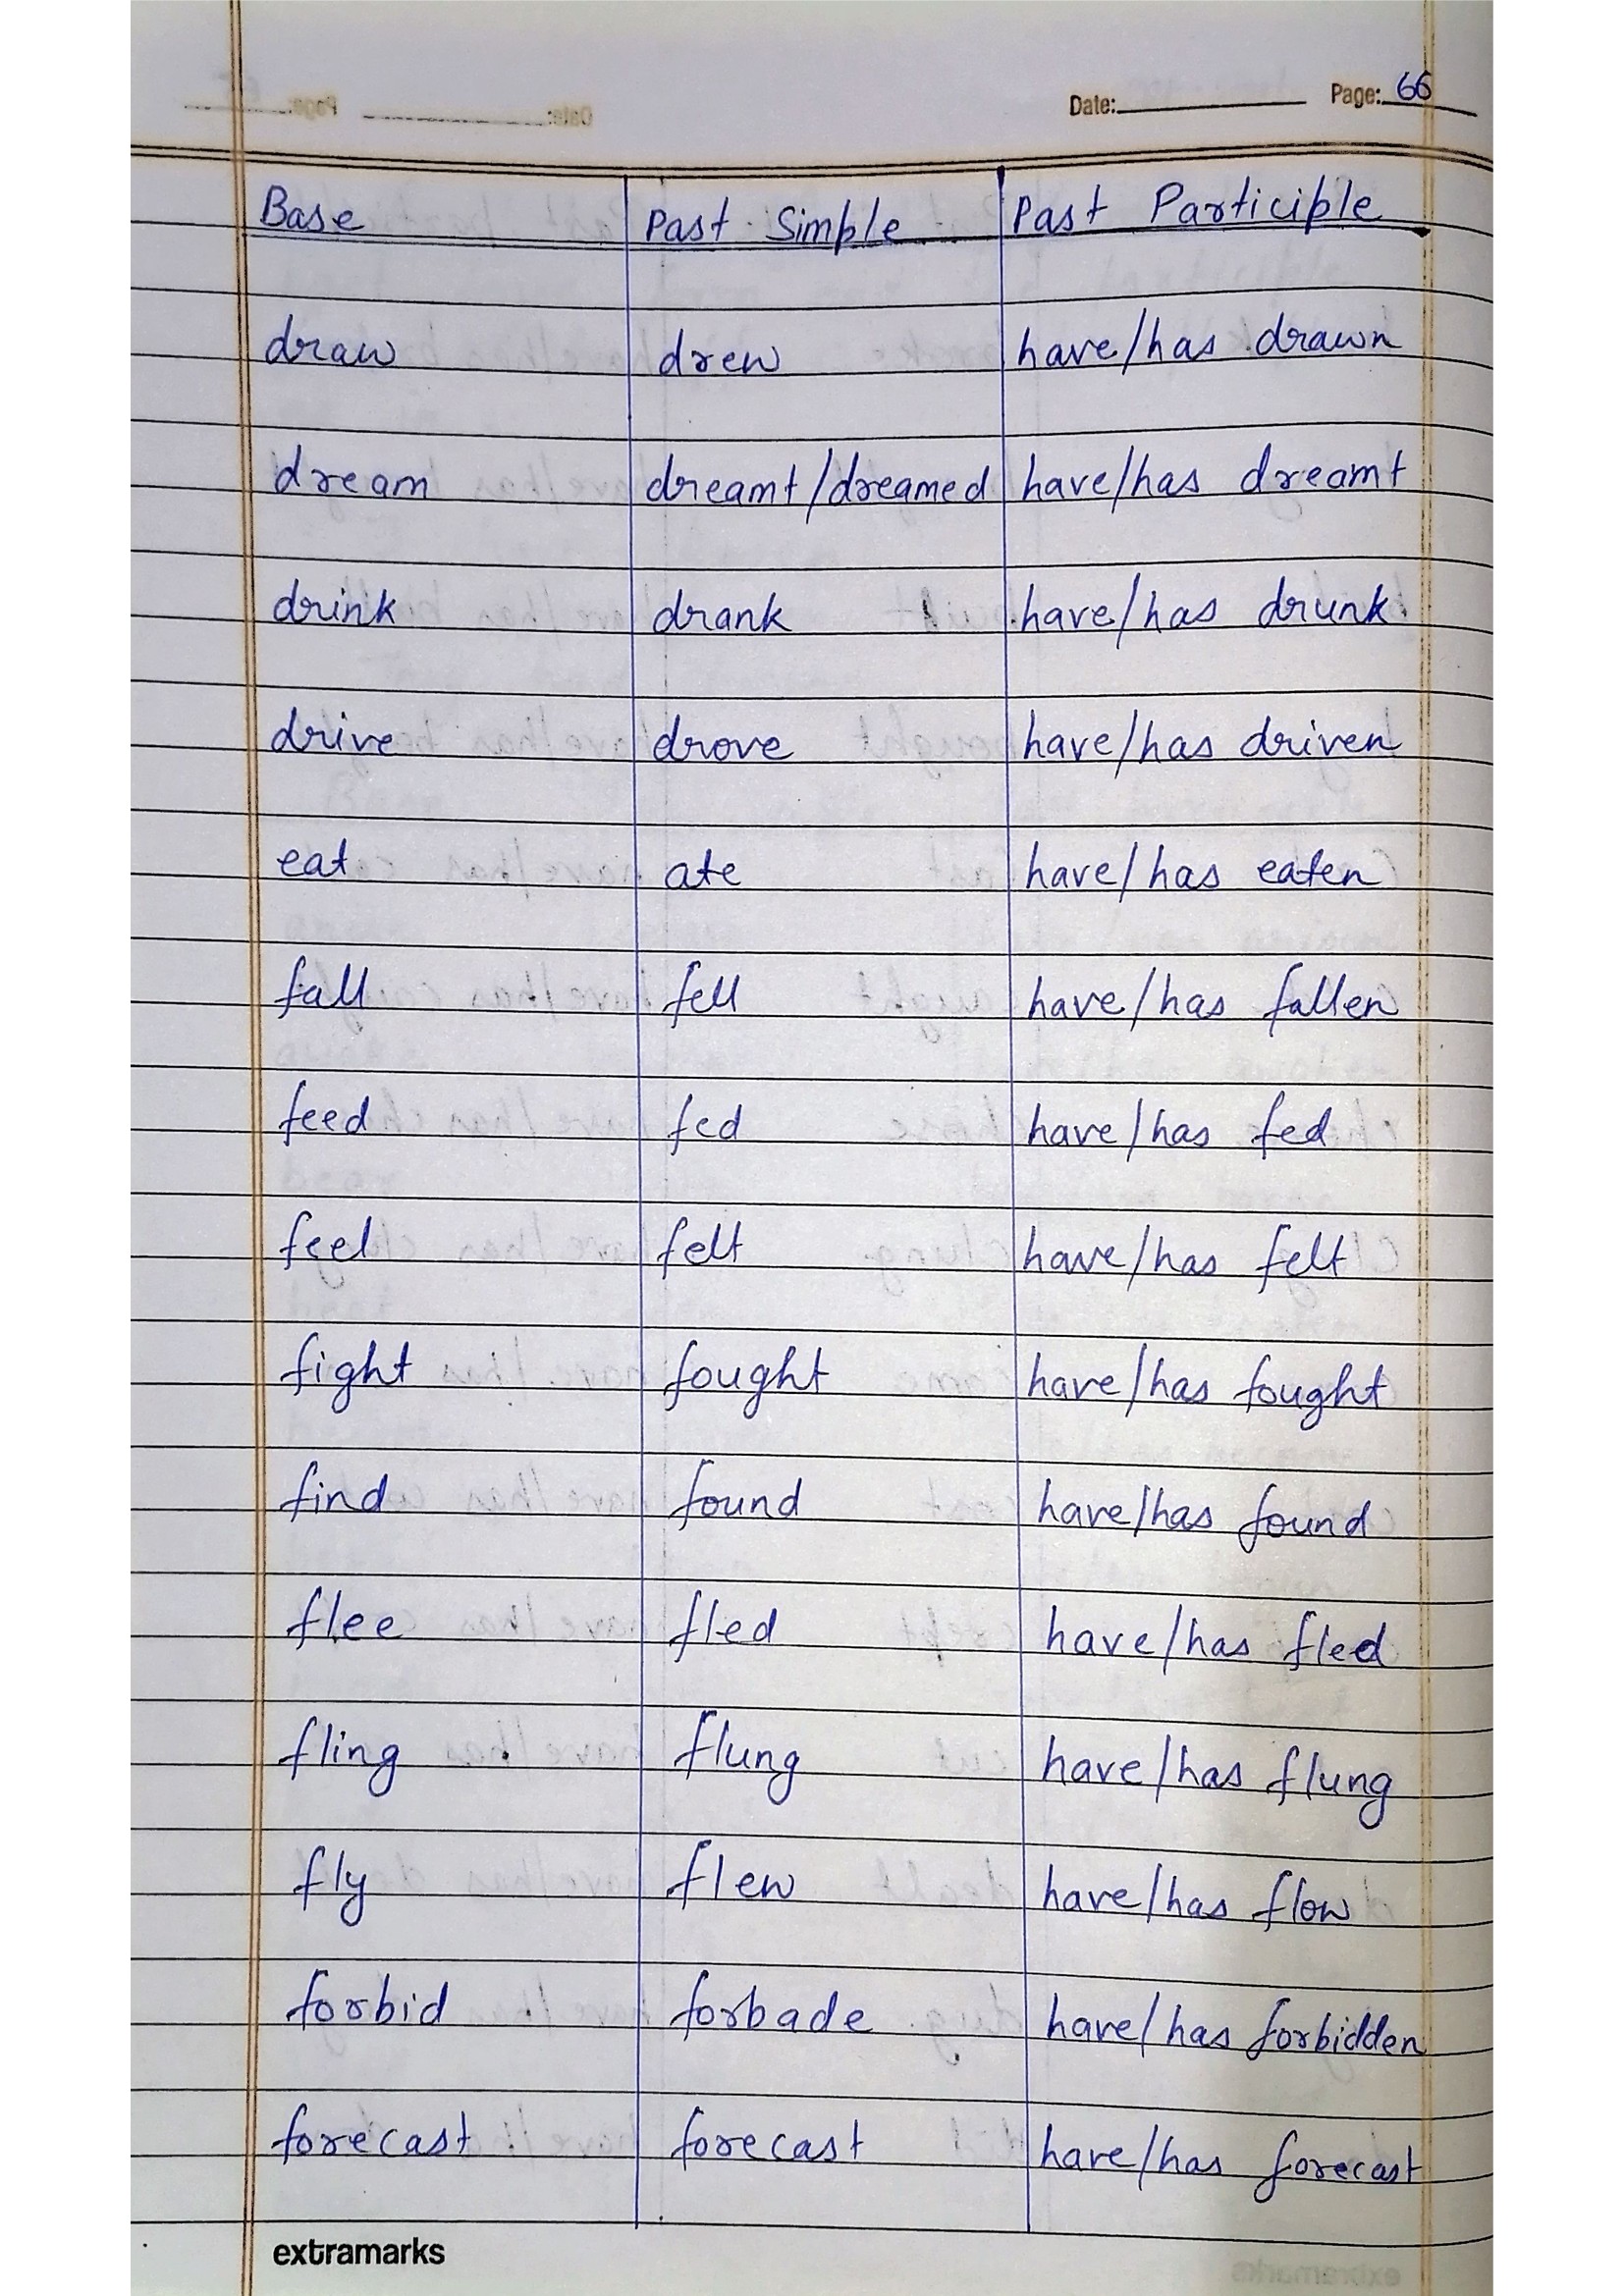 Date: Page: 66
Base Past Simple Past Participle
draw drew have/has drawn
dream dreamt/dreamed have/has dreamt
drink drank have/has drunk
drive drove have/has driven
eat ate have/has eaten
fall fell have/has fallen
feed fed have/has fed
feel felt have/has felt
fight fought have/has fought
find found have/has found
flee fled have/has fled
fling flung have/has flung
fly flew have/has flow
forbid forbade have/has forbidden
forecast forecast have/has forecast
extramarks